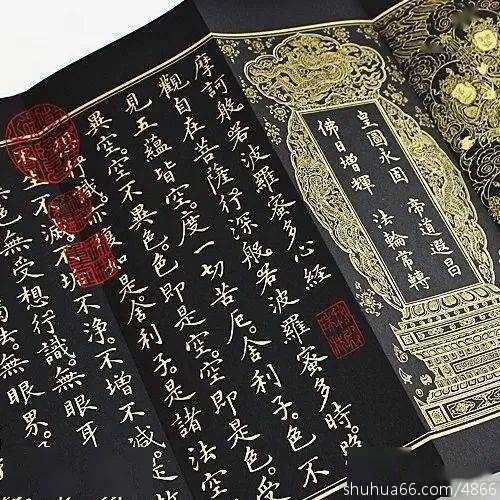 皇圖永固 帝道遐昌
佛日增輝 法輪常轉
摩訶般若波羅蜜多心經
觀自在菩薩行深般若波羅蜜多時。
見五蘊皆空。度一切苦厄。舍利子。色不
異空。空不異色。色即是空。空即是色。受
想行識。亦復如是。舍利子。是諸法空
不生不滅。不垢不淨。不增不減。是故
色無受想行識無眼耳
法。無眼界。
shuhua66.com/4866